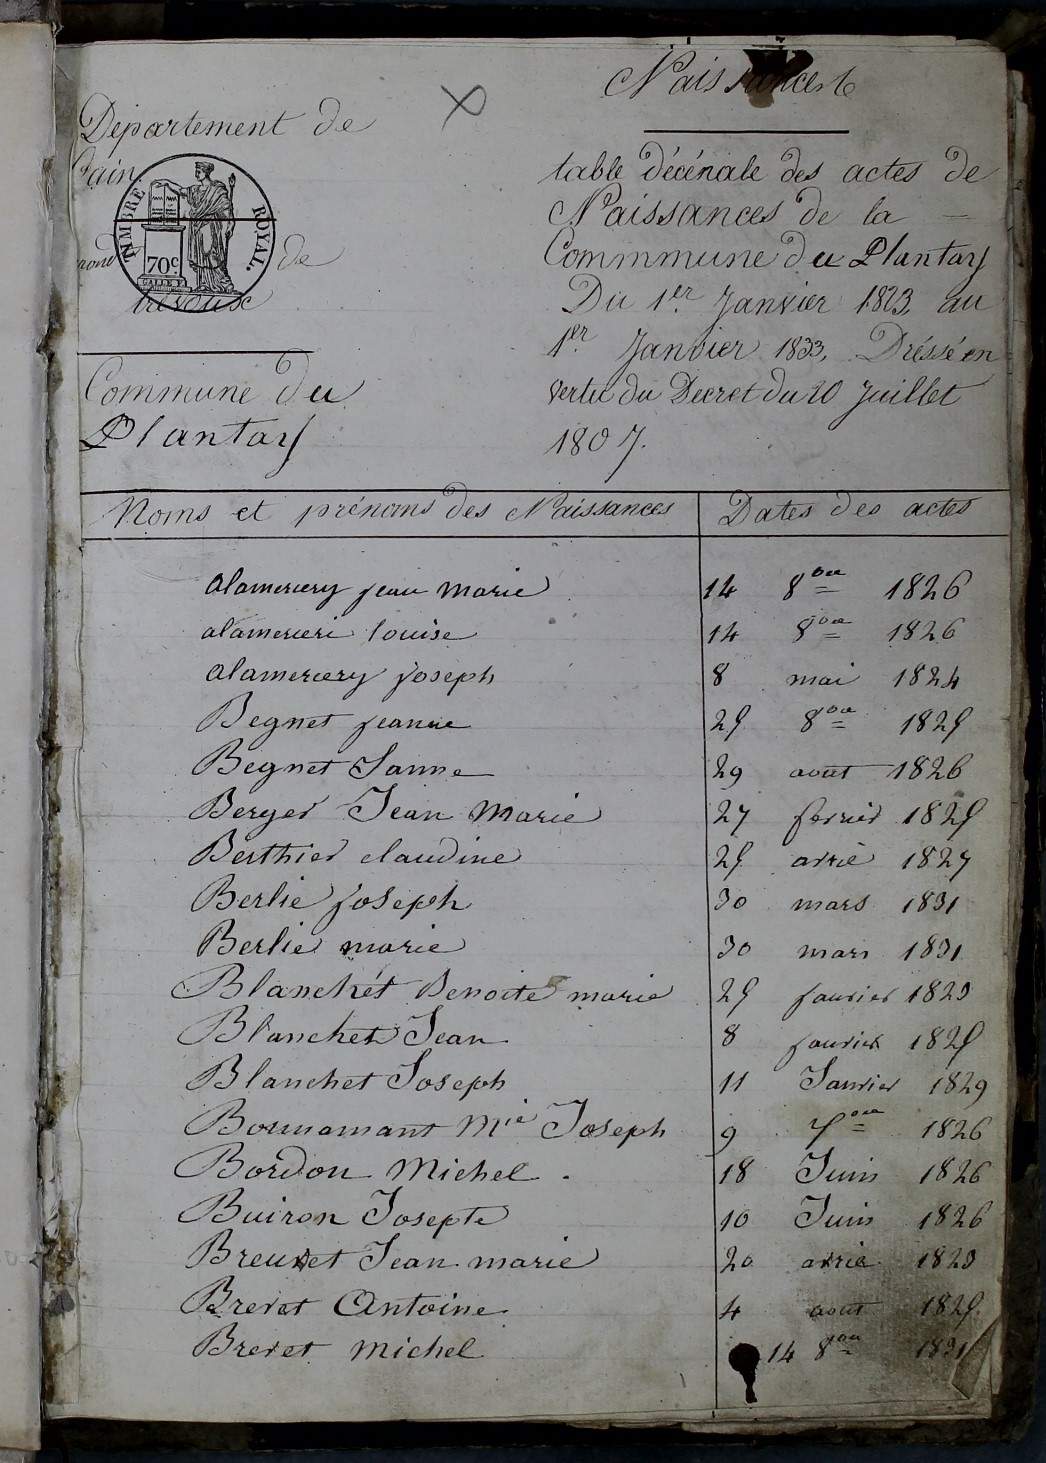 Naissances
Département de
l'ain
TIMBRE ROYAL.
70c
de
trévoux
Commune du
Plantay
table décénale des actes de
Naissances de la
Commmune du Plantay
Du 1er Janvier 1823 au
1er Janvier 1833, Dréssé en
vertu du Decret du 20 Juillet
1807.
Noms et prénoms des Naissances Dates des actes
alamercery jean marie 14 8bre 1826
alamerceri louise 14 8bre 1826
alamercery joseph 8 mai 1824
Begnet jeanne 25 8bre 1825
Begnet Janne 29 aout 1826
Berger Jean Marie 27 fevrier 1825
Berthier claudine 25 avril 1827
Berlie joseph 30 mars 1831
Berlie marie 30 mars 1831
Blanchet Benoite marie 25 fauvier 1823
Blanchet Jean 8 fauvier 1825
Blanchet Joseph 11 Janvier 1829
Bonnamant Mie Joseph 9 7bre 1826
Bordon Michel. 18 Juin 1826
Buiron Josepte 10 Juin 1826
Brevet Jean marie 20 avril 1823
Brevet Antoine 4 aout 1825
Brevet Michel 14 8bre 1831